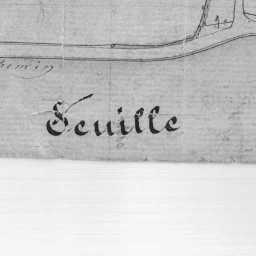 chemin
Feuille